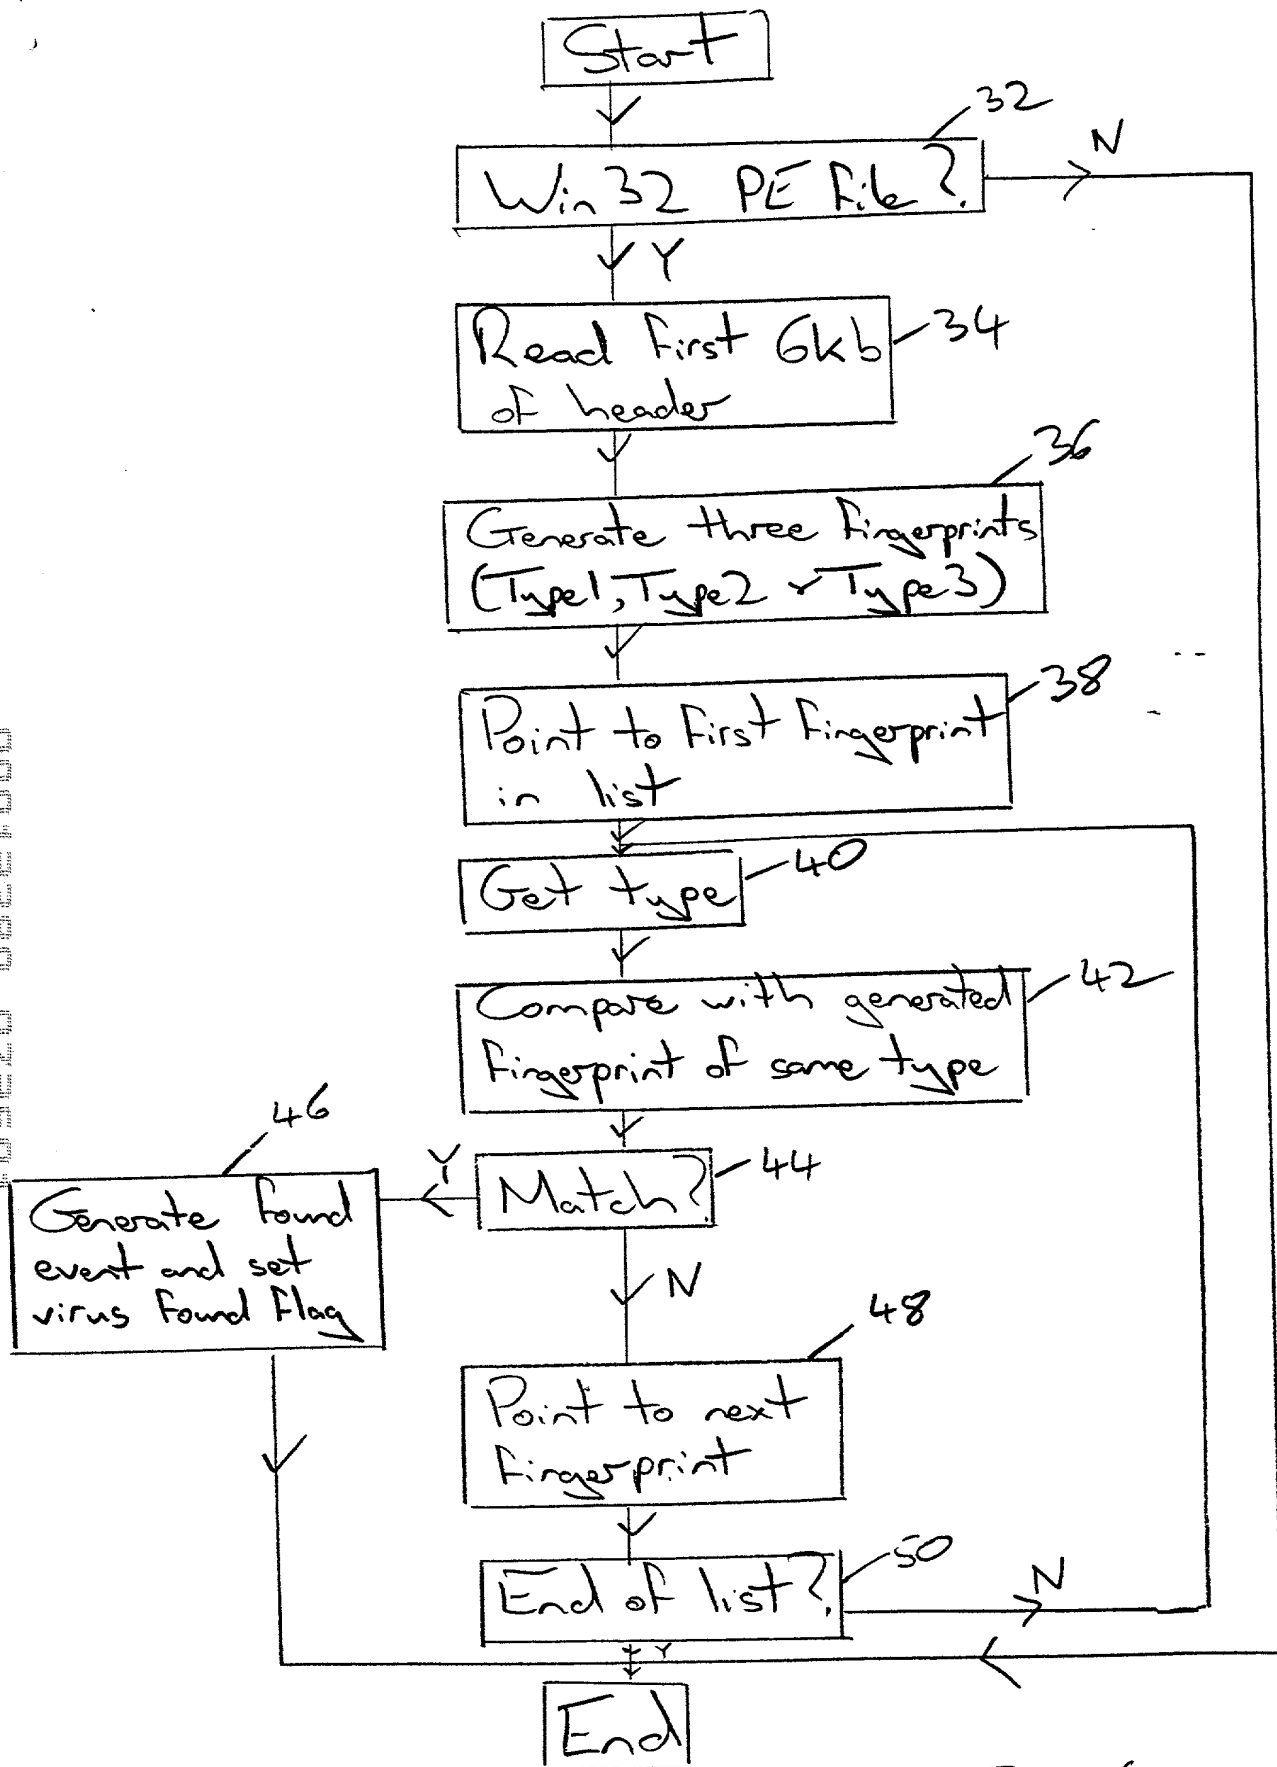 Start
32
N
Win32 PE File?
Y
Read First 6kb
34
of header
36
Generate three Fingerprints
(Type1, Type2 & Type3)
38
Point to First Fingerprint
in list
40
Get type
42
Compare with generated
Fingerprint of same type
46
Y
Match?
44
Generate Found
event and set
virus Found Flag
N
48
Point to next
Fingerprint
50
End of list?
N
Y
End